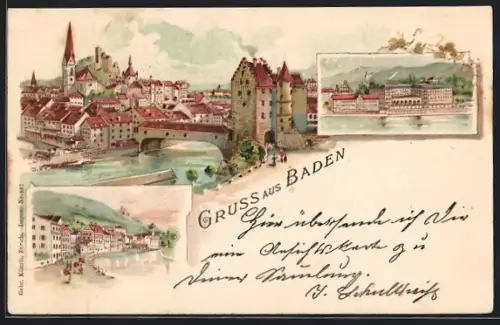 GRUSS AUS BADEN
Hier übersende ich Dir
eine Ansichtskarte zu
Deiner Sammlung.
J. Schultheiß
Gebr. Künzli, Zürich.